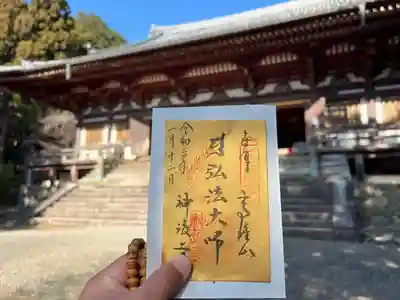 奉拝
高雄山
弘法大師
神護寺
令和
一月十二日